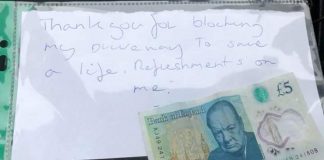 Thank you for blocking
my driveway to save
a life. Refreshments on
me.
Bank of England
£5